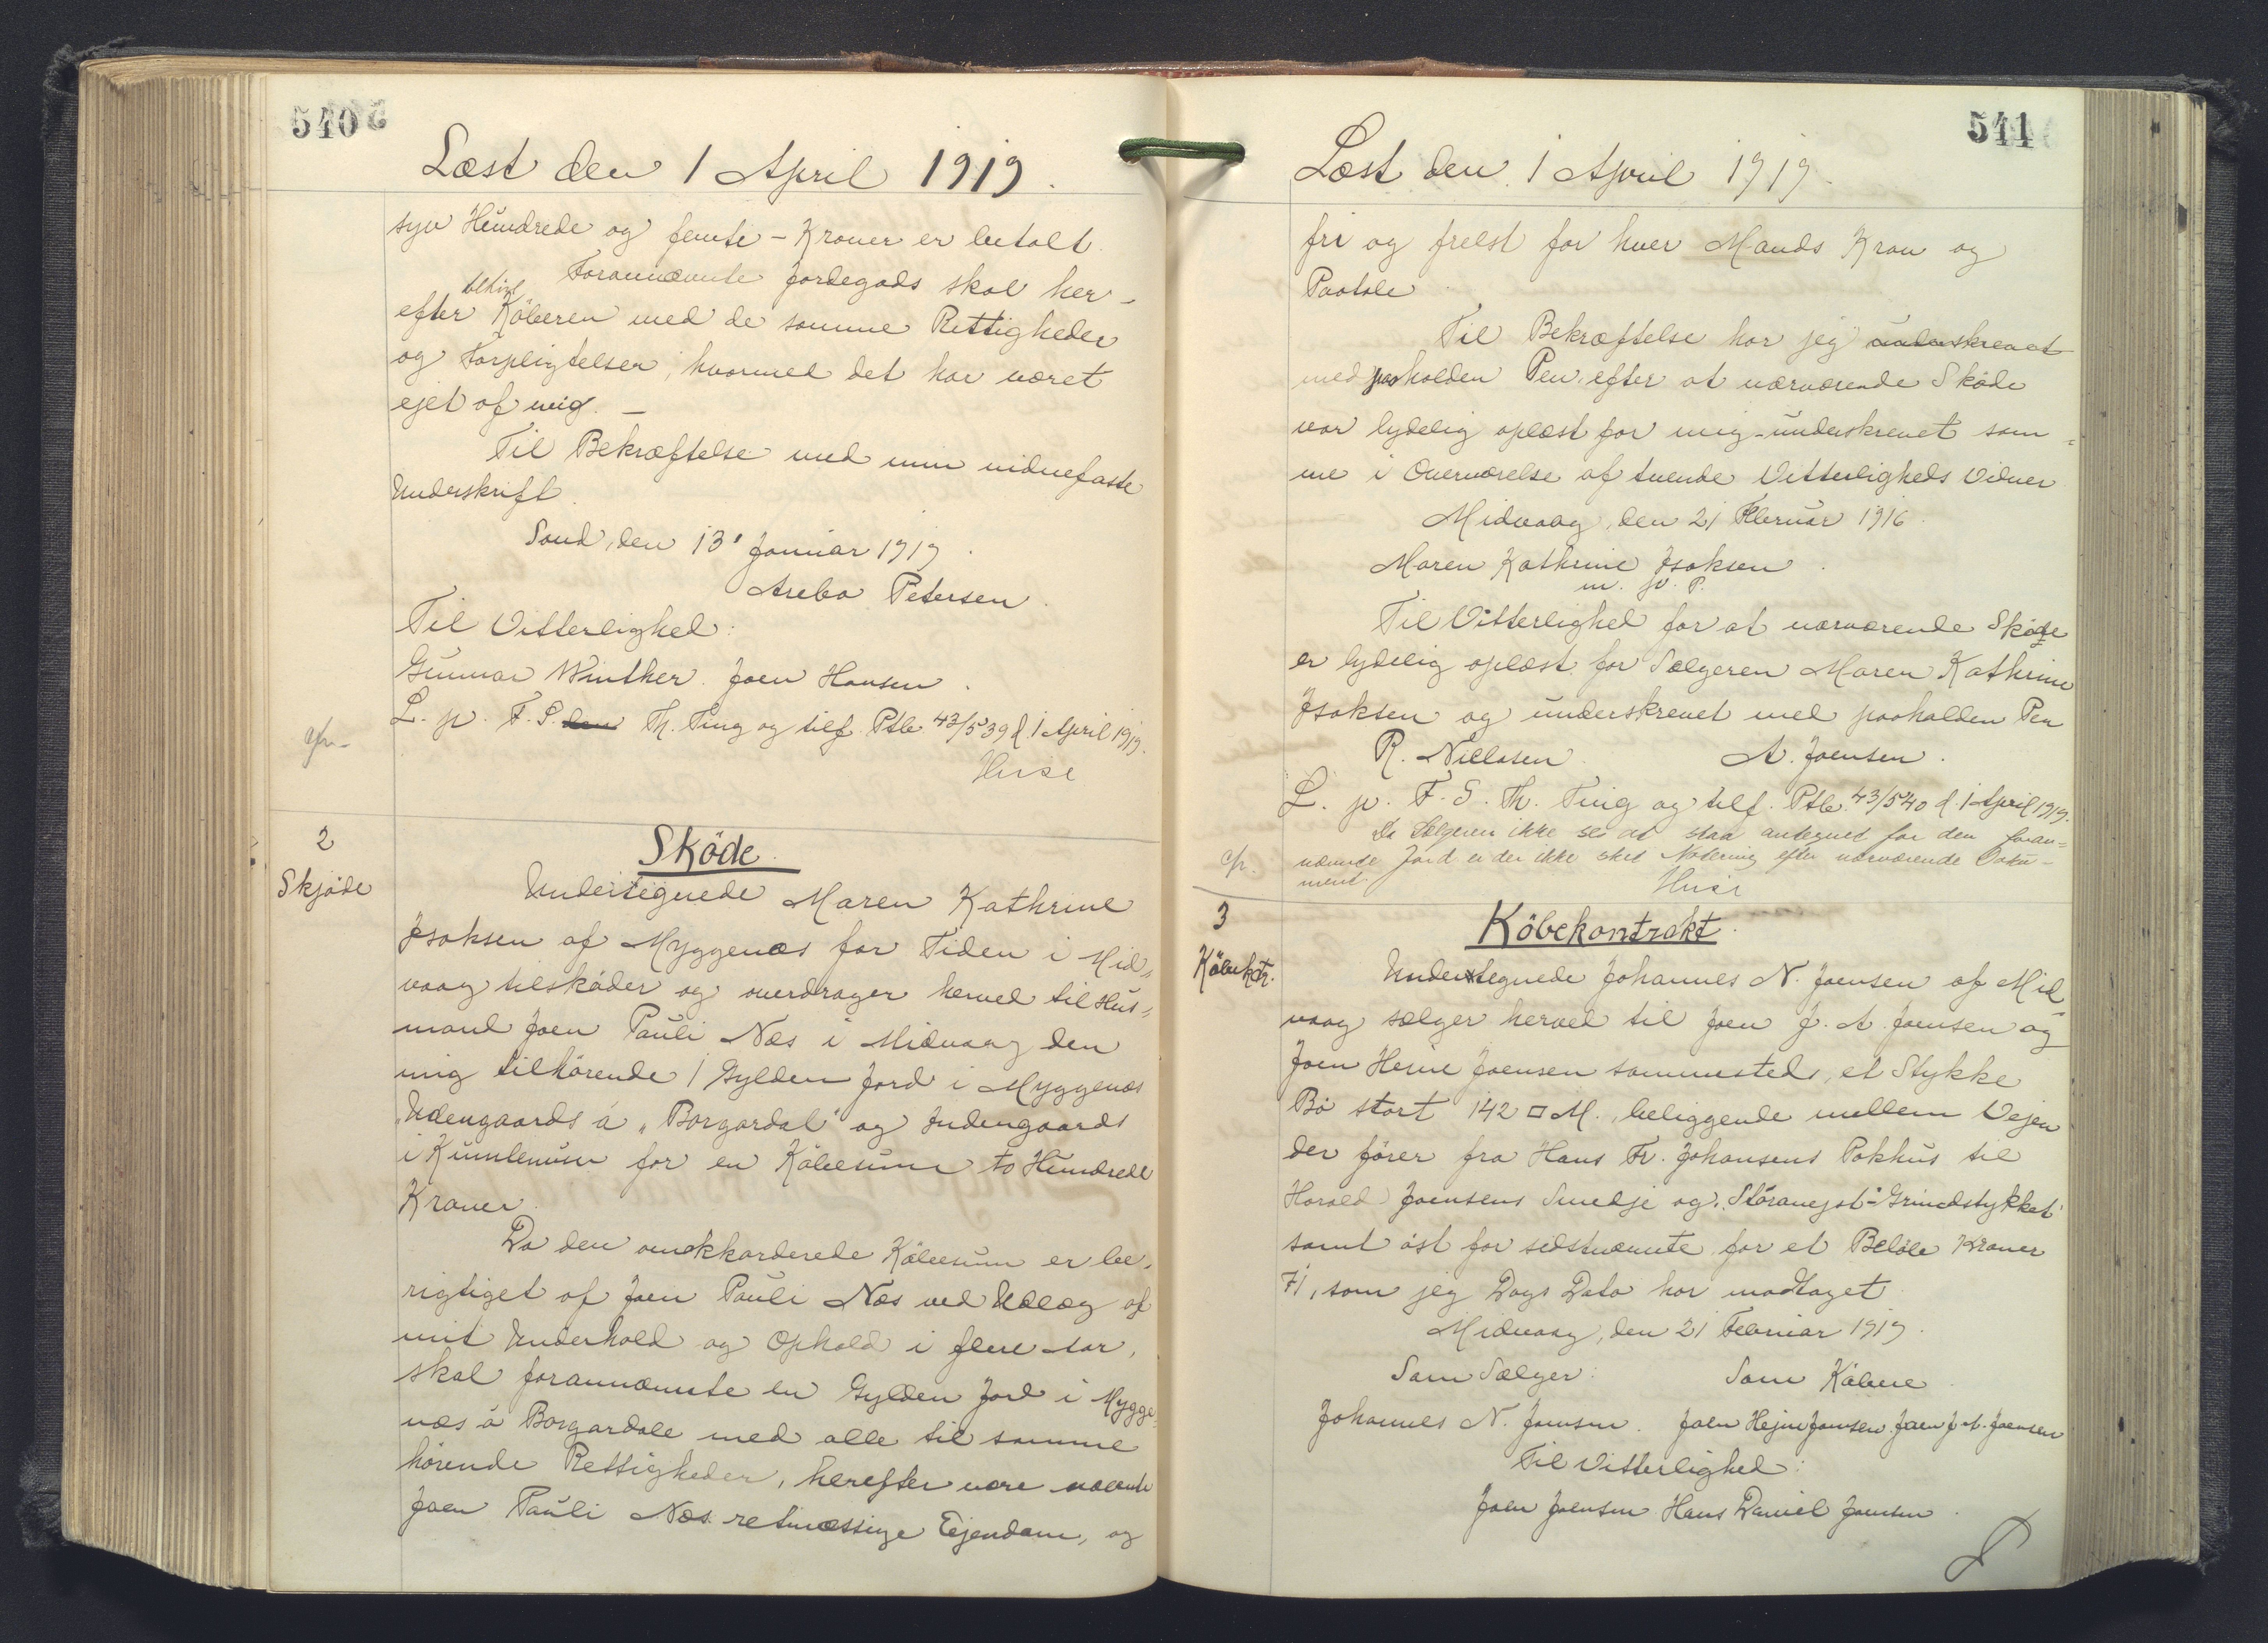 540
Læst den 1 April 1919.
syv Hundrede og femti - Kroner er betalt.
Forannævnte Jordegods skal her-
tilhøre
efter Köberen med de samme Rettigheder
og Forpligtelser, hvormed det har været
ejet af mig. -
Til Bekræftelse med min vidnefaste
Underskrift.
Sand, den 13' Januar 1919.
Petersen.
Til Vitterlighed:
Gunnar Winther. Joen Hansen.
L. p. F. S. den Th. Ting og tilf. Ptb. 43/539 d. 1 April 1919.
Huse
2
Skjøde
Sköde.
Undertegnede Maren Kathrine
Jsaksen af Myggenæs for Tiden i Mid„
vaag tilskøder og overdrager herved til Hus„
mand Joen Pauli Næs i Midvaag den
mig tilhørende 1 Gylden Jord i Myggenæs
Udengaards á „Borgardal" og Indengaards
i for en Købesum to Hundrede
Kroner.
Da den omakkorderede Købesum er be„
rigtiget af Joen Pauli Næs ved Udlæg af
mit Underhold og Ophold i flere Aar,
skal forannævnte en Gylden Jord i Mygge„
næs á Borgardale med alle til samme
hørende Rettigheder, herefter være nævnte
Joen Pauli Næs retmæssige Ejendom, og
541
Læst den 1 April 1919.
fri og frelst for hver Mands Krav og
Paatale.
Til Bekræftelse har jeg underskrevet
med paaholden Pen, efter at nærværende Skøde
var lydelig oplæst for mig - underskrevet sam=
me i Overværelse af tvende Vitterligheds Vidner
Midvaag, den 21 Februar 1916.
Maren Kathrine Jsaksen.
m. p. P.
Til Vitterlighed for at nærværende Skøde
er lydelig oplæst for Sælgeren Maren Kathrine
Jsaksen og underskrevet med paaholden Pen
R. Nielasen. A. Joensen.
L. p. F. S. Th. Ting og tilf. Ptb. 43/540 d. 1 April 1919.
Da Sælgeren ikke ses at staa antegnet for den foran=
nævnte Jord er der ikke sket Notering efter nærværende Doku-
ment.
Huse
3
Købekontr.
Köbekontrakt.
Undertegnede Johannes N. Joensen af Mid„
vaag sælger herved til Joen J. A. Joensen og
Joen Heine Joensen sammesteds, et Stykke
Bø stort 142 □ M., beliggende mellem Vejen
der fører fra Hans Fr. Johansens Pakhus til
Harald Joensens Smedje og
samt øst for sidstnævnte for et Beløb Kroner
71, som jeg Dags Dato har modtaget.
Midvaag, den 21 Februar 1919.
Som Sælger: Som Købere.
Johannes N. Joensen. Joen Hejne Joensen. Joen J. A. Joensen
Til Vitterlighed:
Joen Joensen Hans Daniel Joensen.